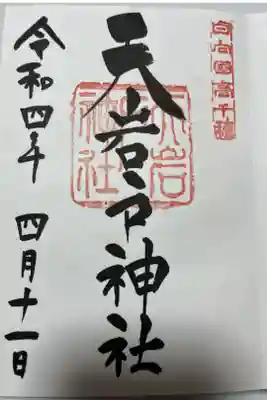 日向國高千穂
天岩戸神社
令和四年 四月十一日